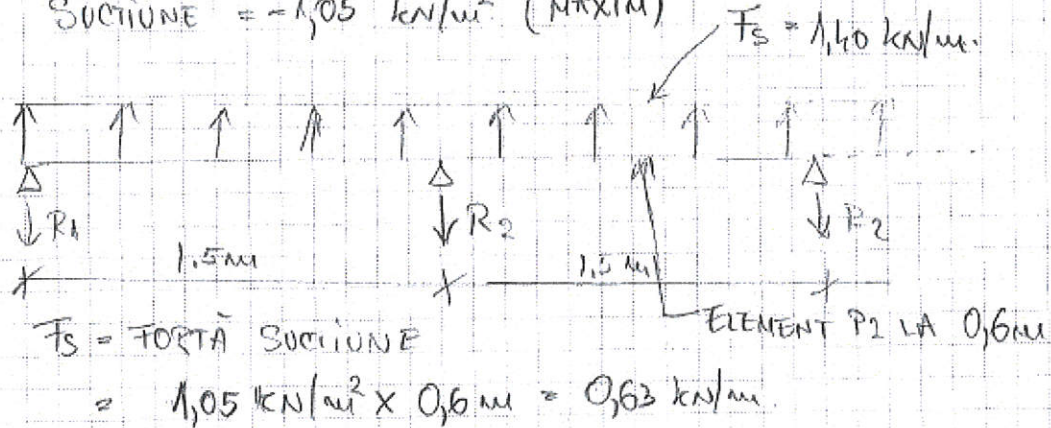 SUCȚIUNE = -1,05 kN/m² (MAXIM)
Fs = 1,40 kN/m.
R1 R2 R2
1.5m 1.5m
ELEMENT P2 LA 0,6m
Fs = FORȚĂ SUCȚIUNE
= 1,05 kN/m² X 0,6m = 0,63 kN/m.